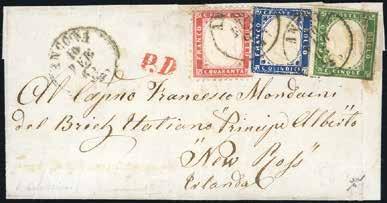 ANCONA
10
FEB
P.D.
FRANCO BOLLO
C. QUARANTA
FRANCO BOLLO
C. QUINDICI
C. CINQUE
Al Capno Francesco Mondaini
del Brick Italiano "Principe Alberto"
"New Ross"
Irlanda